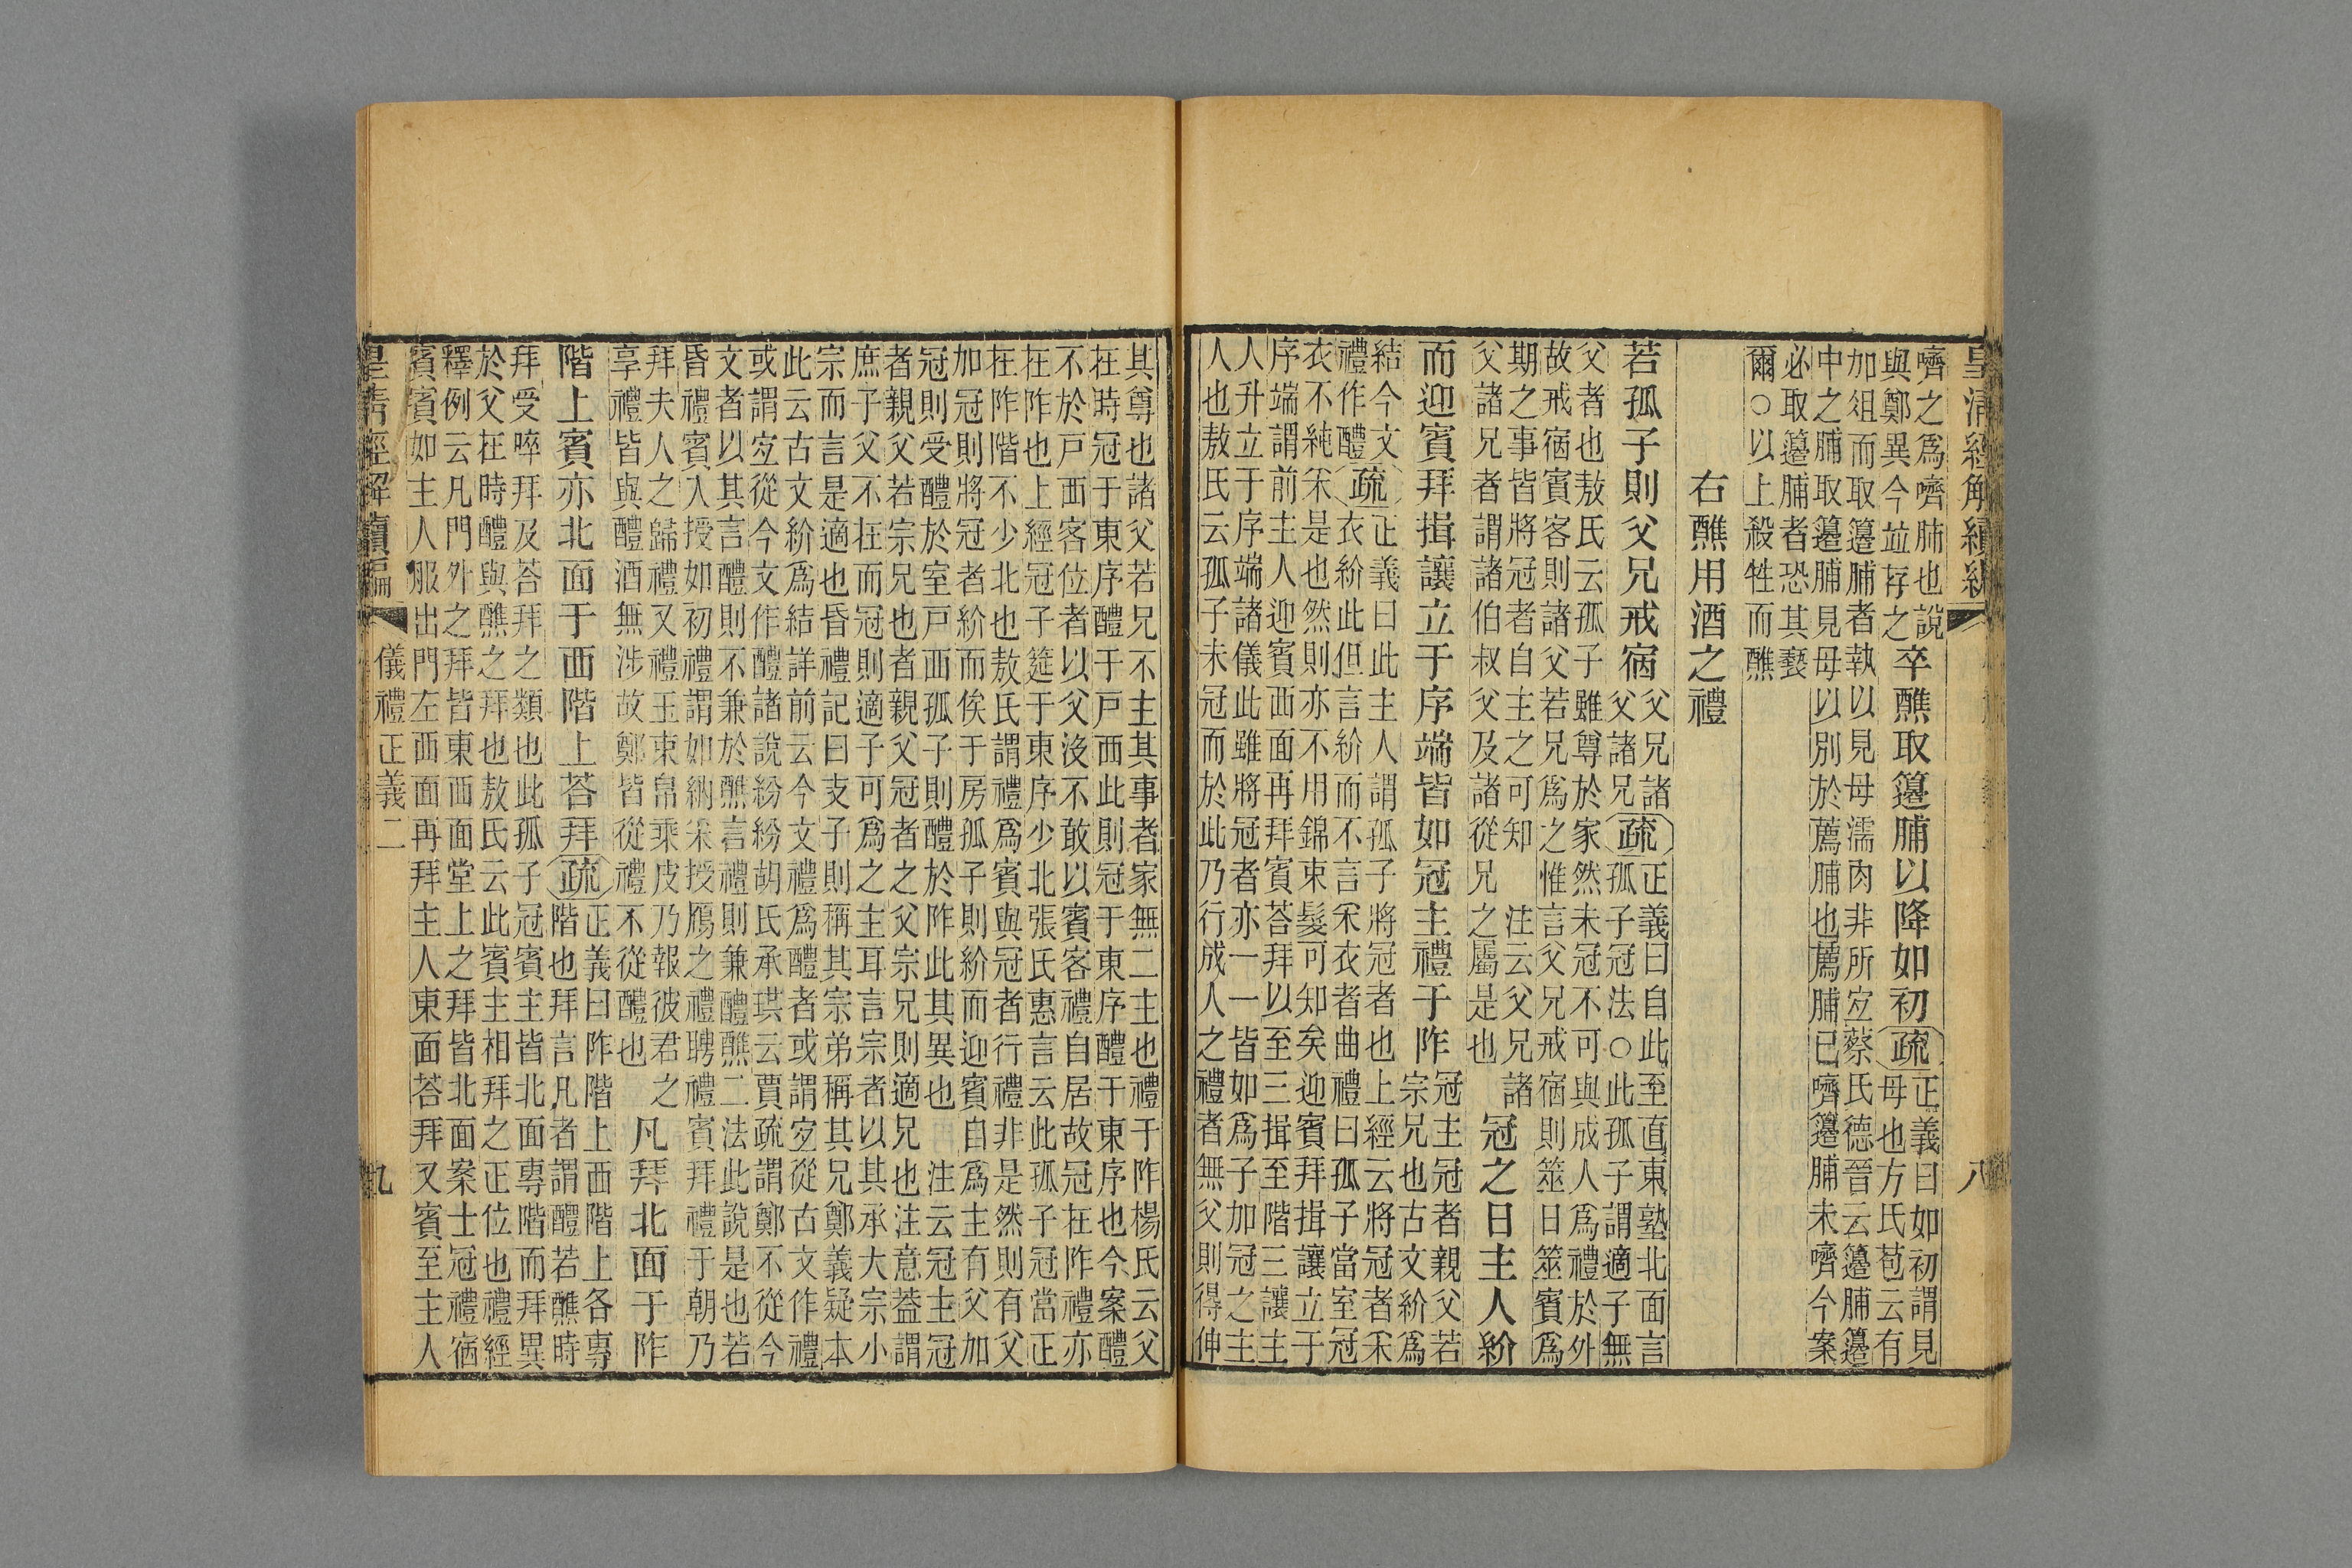 皇清經解續編
八
嚌之爲嚌肺也說
與鄭異今並存之
卒醮取籩脯以降如初疏
正義曰如初謂見
母也方氏苞云有
加俎而取籩脯者執以見母濡肉非所宜蔡氏德晉云籩脯籩
中之脯取籩脯見母以別於薦脯也薦脯已嚌籩脯未嚌今案
必取籩脯者恐其褻
爾○以上殺牲而醮
右醮用酒之禮
若孤子則父兄戒宿
父兄諸
父諸兄
疏
正義曰自此至直東塾北面言
孤子冠法○此孤子謂適子無
父者也敖氏云孤子雖尊於家然未冠不可與成人爲禮於外
故戒宿賓客則諸父若兄爲之惟言父兄戒宿則筮日筮賓爲
期之事皆將冠者自主之可知 注云父兄諸
父諸兄者謂諸伯叔父及諸從兄之屬是也
冠之日主人紒
而迎賓拜揖讓立于序端皆如冠主禮于阼
冠主冠者親父若
宗兄也古文紒爲
結今文
禮作醴
疏
正義曰此主人謂孤子將冠者也上經云將冠者采
衣紒此但言紒而不言采衣者曲禮曰孤子當室冠
衣不純采是也然則亦不用錦束髮可知矣迎賓拜揖讓立于
序端謂前主人迎賓西面再拜賓荅拜以至三揖至階三讓主
人升立于序端諸儀此雖將冠者亦一一皆如爲子加冠之主
人也敖氏云孤子未冠而於此乃行成人之禮者無父則得伸
其尊也諸父若兄不主其事者家無二主也禮于阼楊氏云父
在時冠于東序醴于戶西此則冠于東序醴于東序也今案醴
不於戶西客位者以父沒不敢以賓客禮自居故冠在阼禮亦
在阼也上經冠子筵于東序少北張氏惠言云此孤子冠當正
在阼階不少北也敖氏謂禮爲賓與冠者行禮非是然則有父
加冠則將冠者紒而俟于房孤子則紒而迎賓自爲主有父加
冠則受醴於室戶西孤子則醴於阼此其異也 注云冠主冠
者親父若宗兄也者親父冠者之父宗兄則適兄也注意蓋謂
庶子父不在而冠則適子可爲之主耳言宗者以其承大宗小
宗而言是適也昏禮記曰支子則稱其宗弟稱其兄鄭義疑本
此云古文紒爲結詳前云今文禮爲醴者或謂宜從古文作禮
或謂宜從今文作醴諸說紛紛胡氏承珙云賈疏謂鄭不從今
文者以其言醴則不兼於醮言禮則兼醴醮二法此說是也若
昏禮賓入授如初禮謂如納采授鴈之禮聘禮賓拜禮于朝乃
拜夫人之歸禮又禮玉束帛乘皮乃報彼君之
享禮皆與醴酒無涉故鄭皆從禮不從醴也
凡拜北面于阼
階上賓亦北面于西階上荅拜疏
正義曰阼階上西階上各專
階也拜言凡者謂醴若醮時
拜受啐拜及荅拜之類也此孤子冠賓主皆北面專階而拜異
於父在時醴與醮之拜也敖氏云此賓主相拜之正位也禮經
釋例云凡門外之拜皆東西面堂上之拜皆北面案士冠禮宿
賓賓如主人服出門左西面再拜主人東面荅拜又賓至主人
皇清經解續編
儀禮正義二
九